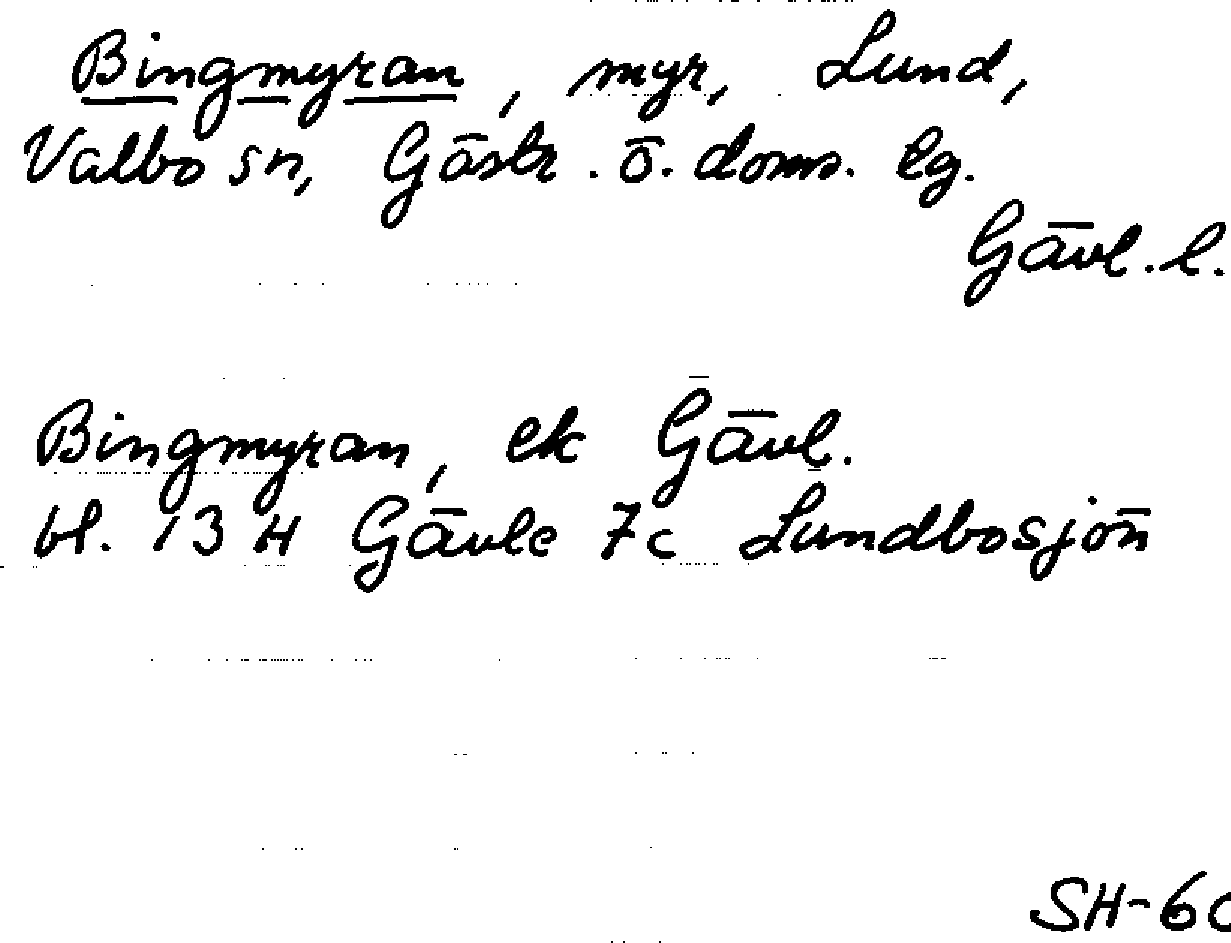 Bingmyran, myr, Lund,
Valbo sn, Gästr. ö. doms. lg.
Gävl. l.
Bingmyran, ek Gävl.
bl. 13 H Gävle 7c Lundbosjön
SH-60